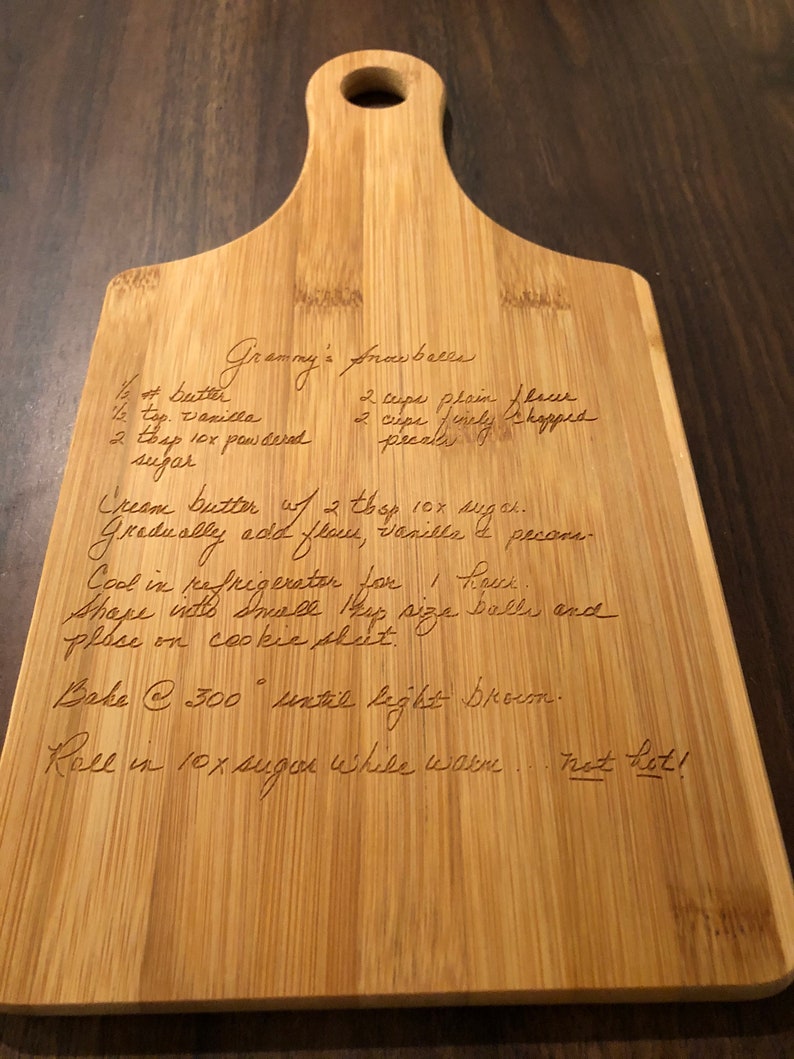 Grammy's Snowballs
½ # butter
½ tsp. vanilla
2 tbsp 10x powdered
sugar
2 cups plain flour
2 cups finely chopped
pecans
Cream butter w/ 2 tbsp 10x sugar.
Gradually add flour, vanilla & pecans.
Cool in refrigerator for 1 hour.
Shape into small 1 tsp size balls and
place on cookie sheet.
Bake @ 300° until light brown.
Roll in 10x sugar while warm ... not hot!